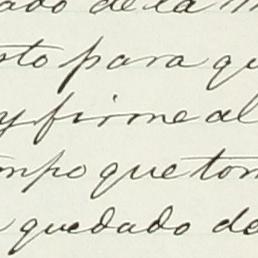 ado de la m
sto para qu
y firme al
mpo que tom
quedado de